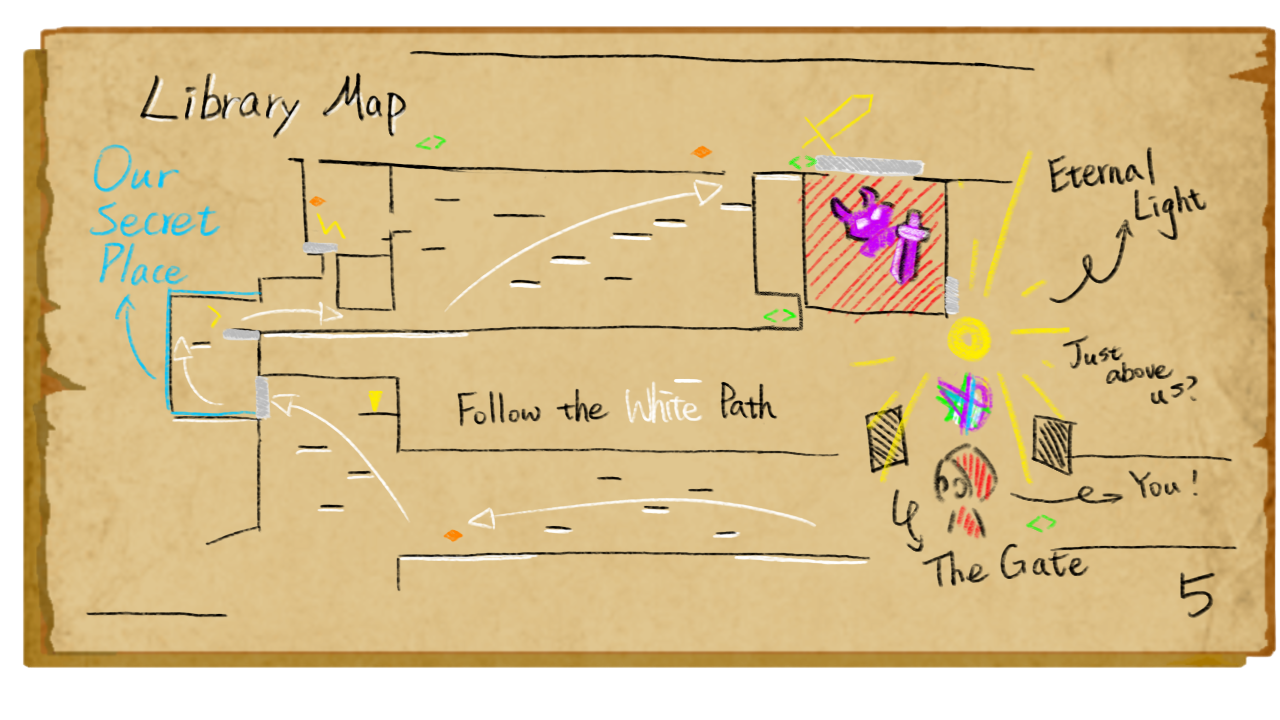 Library Map
Our
Secret
Place
Eternal
Light
Just
above
us?
Follow the White Path
You!
The Gate
5